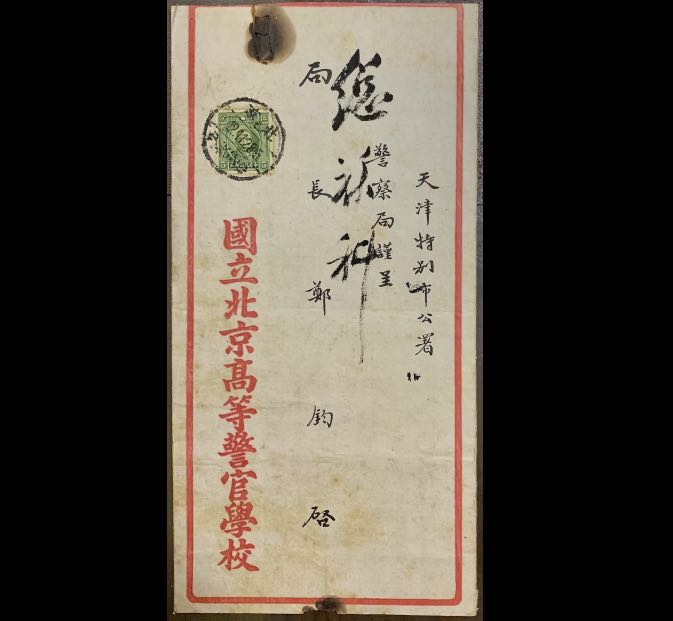 天津特別市公署
警察局謹呈
總務科
局長鄭鈞啓
國立北京高等警官學校